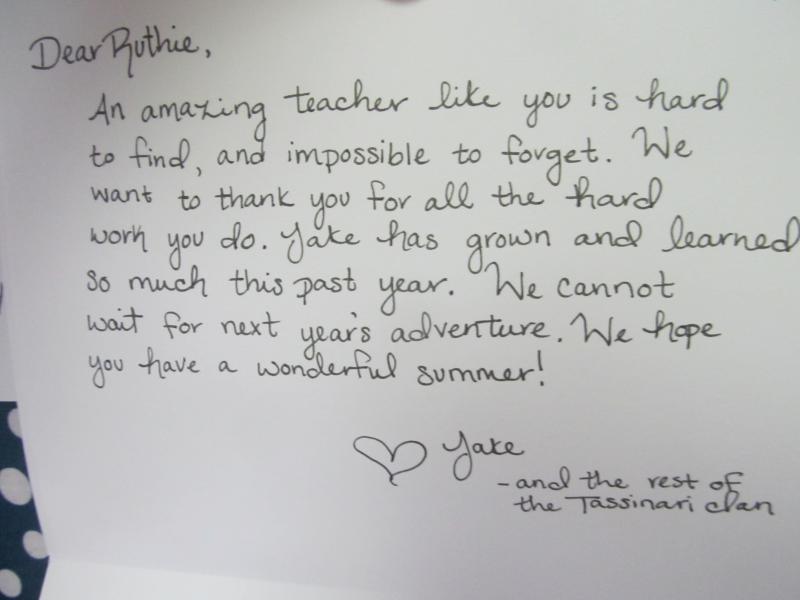 Dear Ruthie,
An amazing teacher like you is hard
to find, and impossible to forget. We
want to thank you for all the hard
work you do. Jake has grown and learned
so much this past year. We cannot
wait for next year's adventure. We hope
you have a wonderful summer!
♡ Jake
-and the rest of
the Tassinari clan